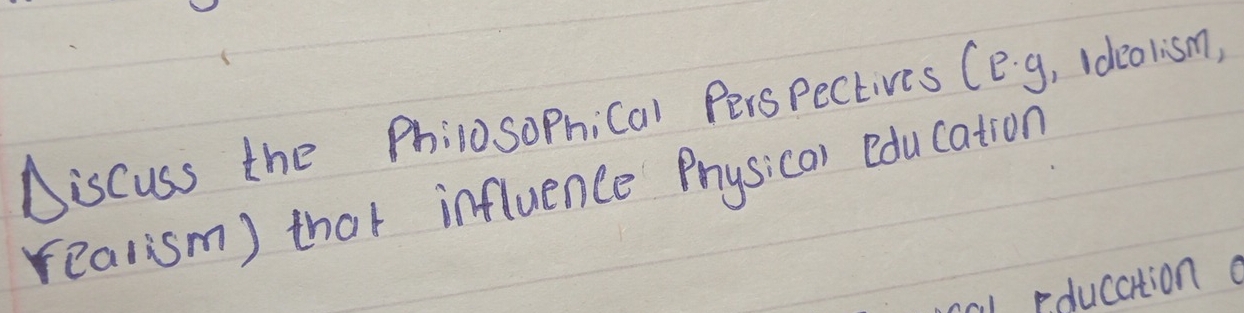 Discuss the Philosophical Perspectives (e.g, Idealism,
realism) that influence Physical education
education